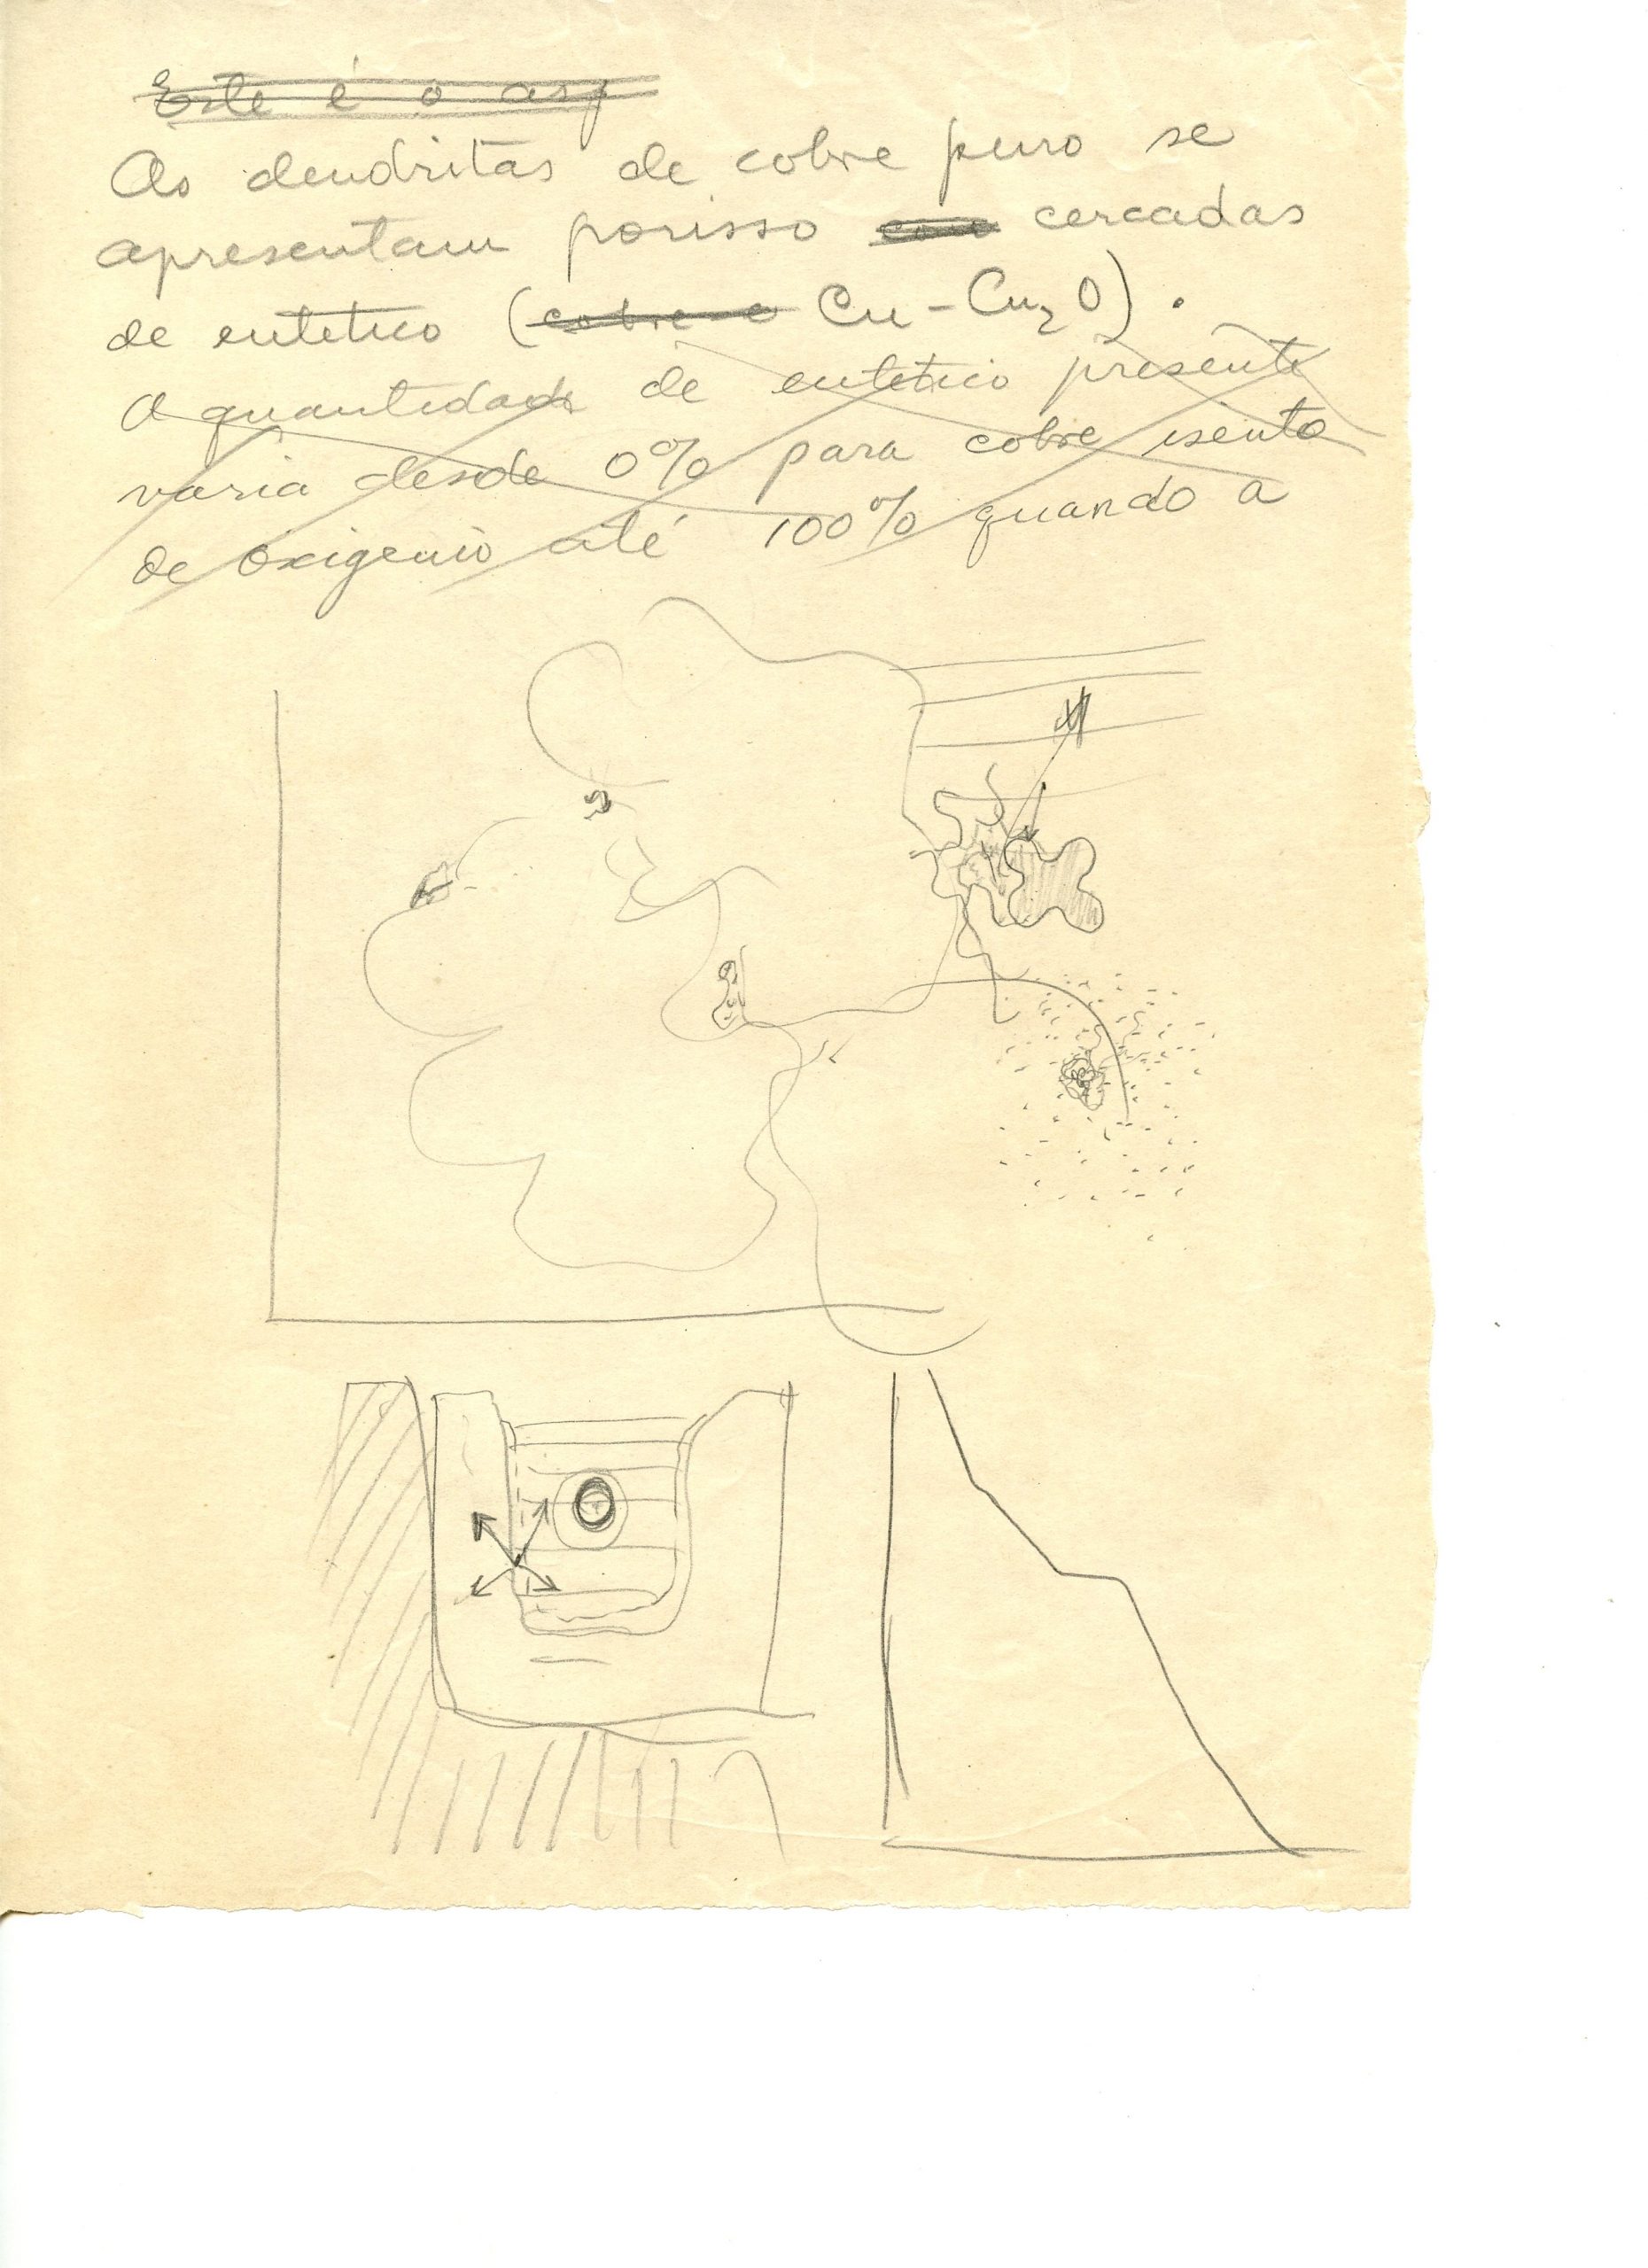 Este é o asp
As dendritas de cobre puro se
apresentam porisso com cercadas
de eutetico (cobre-o Cu-Cu₂O).
A quantidade de eutetico presente
varia desde 0% para cobre isento
de oxigenio até 100% quando a